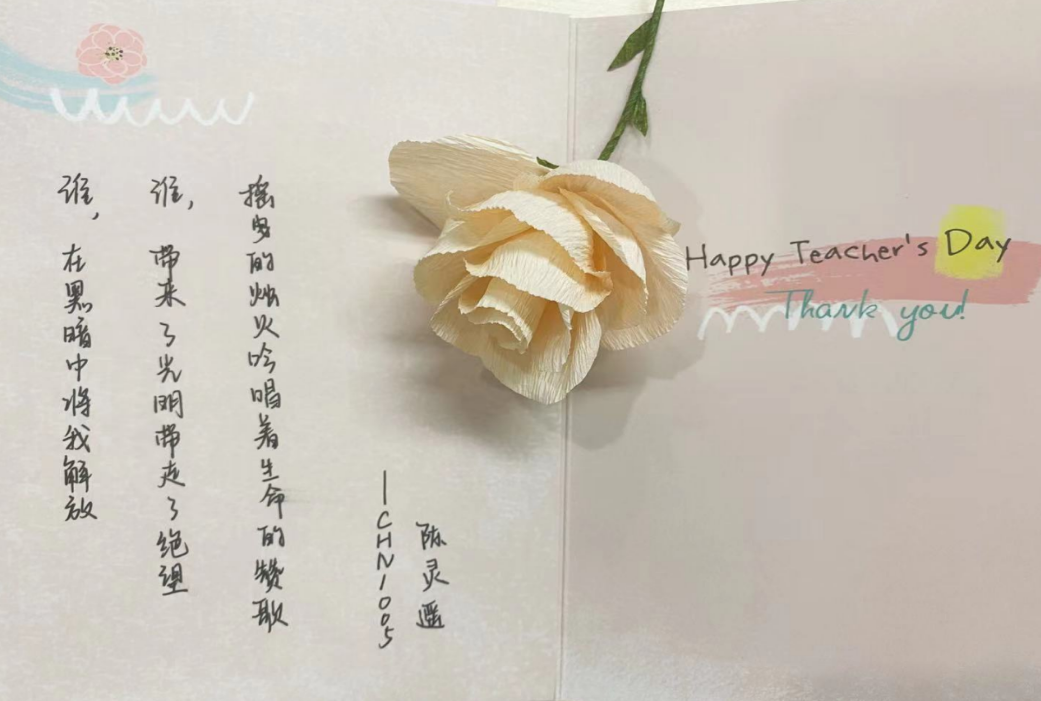 谁，在黑暗中将我解放
谁，带来了光明带走了绝望
摇曳的烛火吟唱着生命的赞歌
—CHN1005
陈灵遥
Happy Teacher's Day
Thank you!